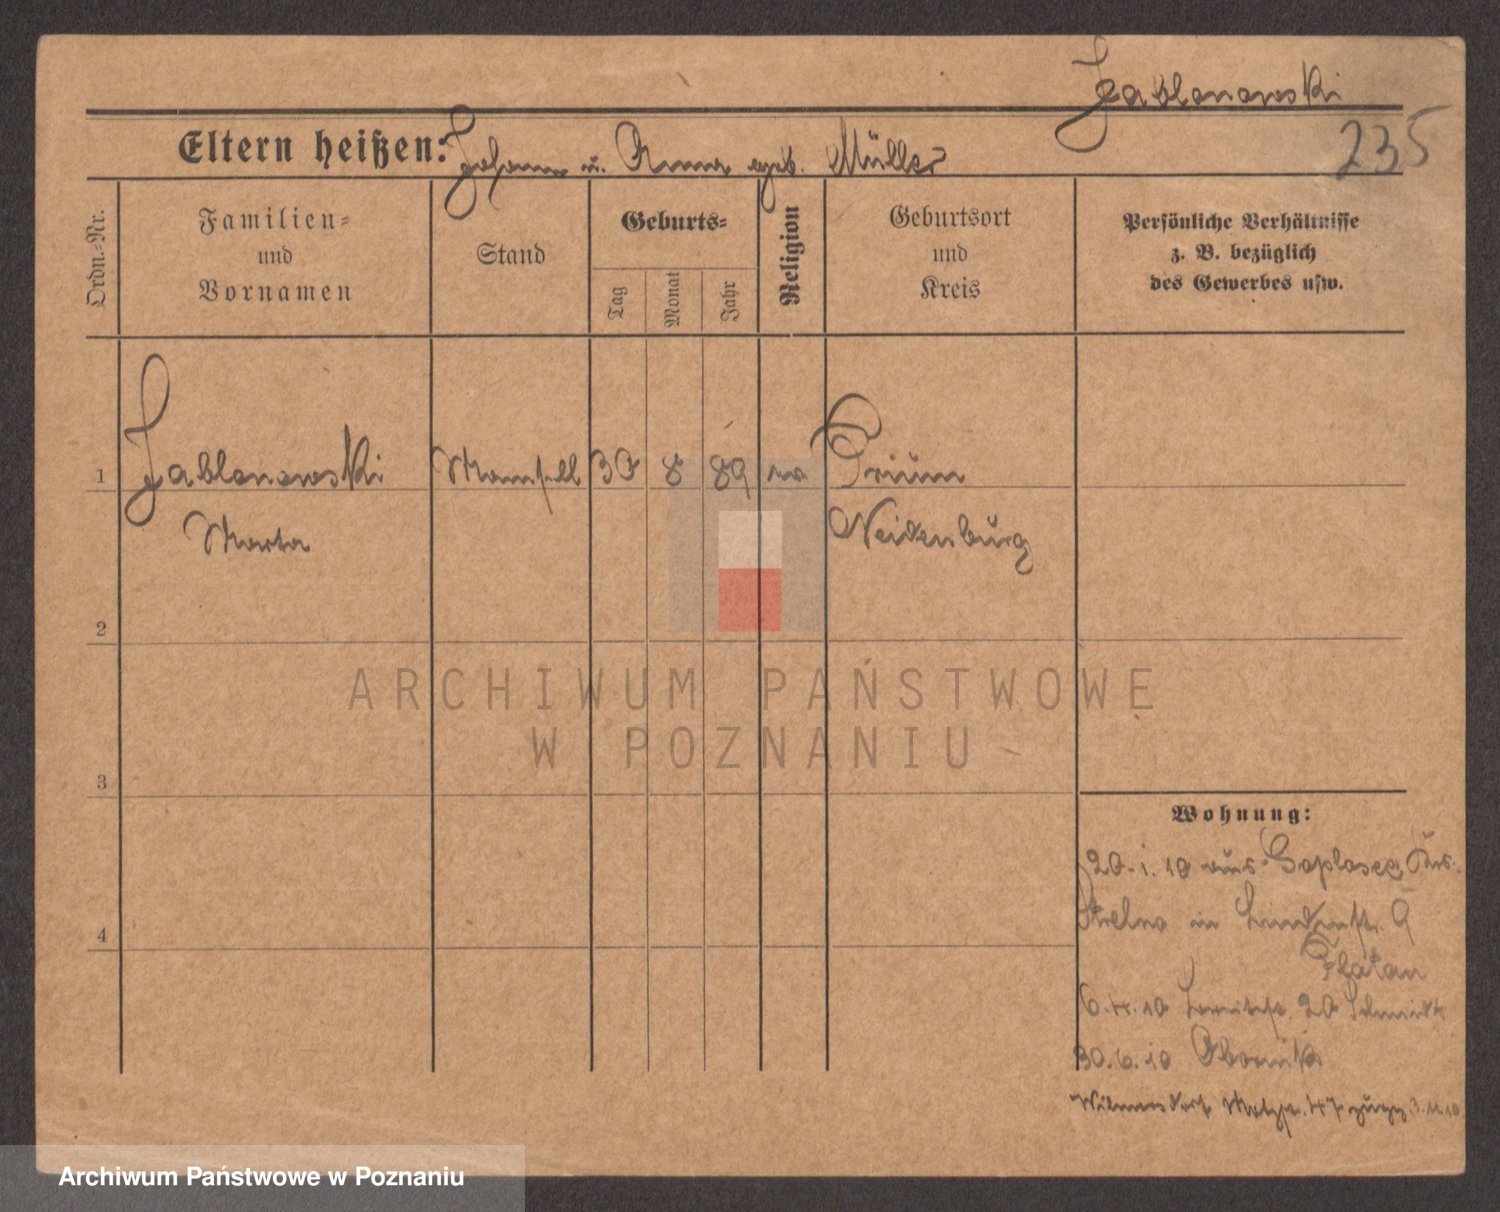 Jablonowski
235
Eltern heißen: Johann u. Anna geb. Müller
Ordn.-Nr.
Familien- und Vornamen
Stand
Geburts-
Tag
Monat
Jahr
Religion
Geburtsort und Kreis
Persönliche Verhältnisse z. B. bezüglich des Gewerbes usw.
1
Jablonowski
Mamsell
30
8
89
ev
Marta
Neidenburg
2
3
4
Wohnung:
20.1.10 aus Krs.
Strelno in Lindenstr. 9
Platau
6.4.10 20 Schmidt
30.6.10 Obornik
Wilmersdorf 47 3.11.10
ARCHIWUM PAŃSTWOWE
W POZNANIU
Archiwum Państwowe w Poznaniu